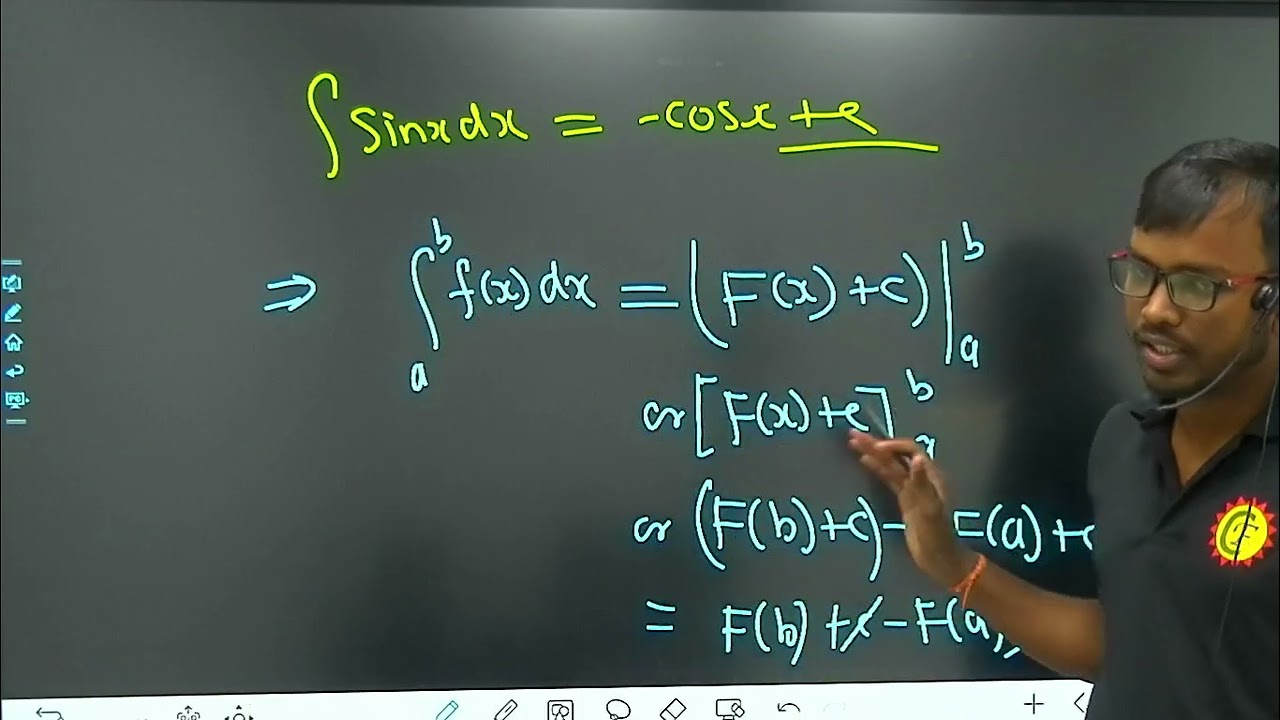 ∫ sinx dx = -cosx + c
⇒ ∫_a^b f(x) dx = (F(x) + c) |_a^b
or [F(x) + c]_a^b
or (F(b) + c) - F(a) + c
= F(b) + c - F(a)